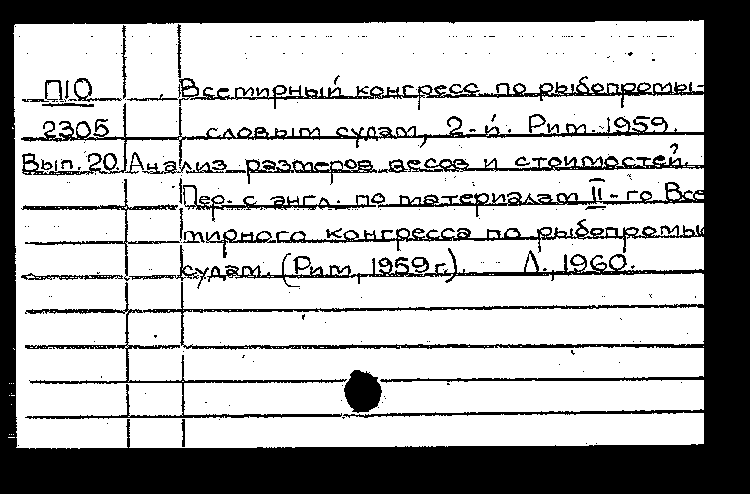 П10 Всемирный конгресс по рыбопромы-
2305 словым судам, 2-й. Рим. 1959.
Вып. 20 Анализ размеров весов и стоимостей.
Пер. с англ. по материалам II-го Все
мирного конгресса по рыбопромы
судам. (Рим, 1959 г.). Л., 1960.